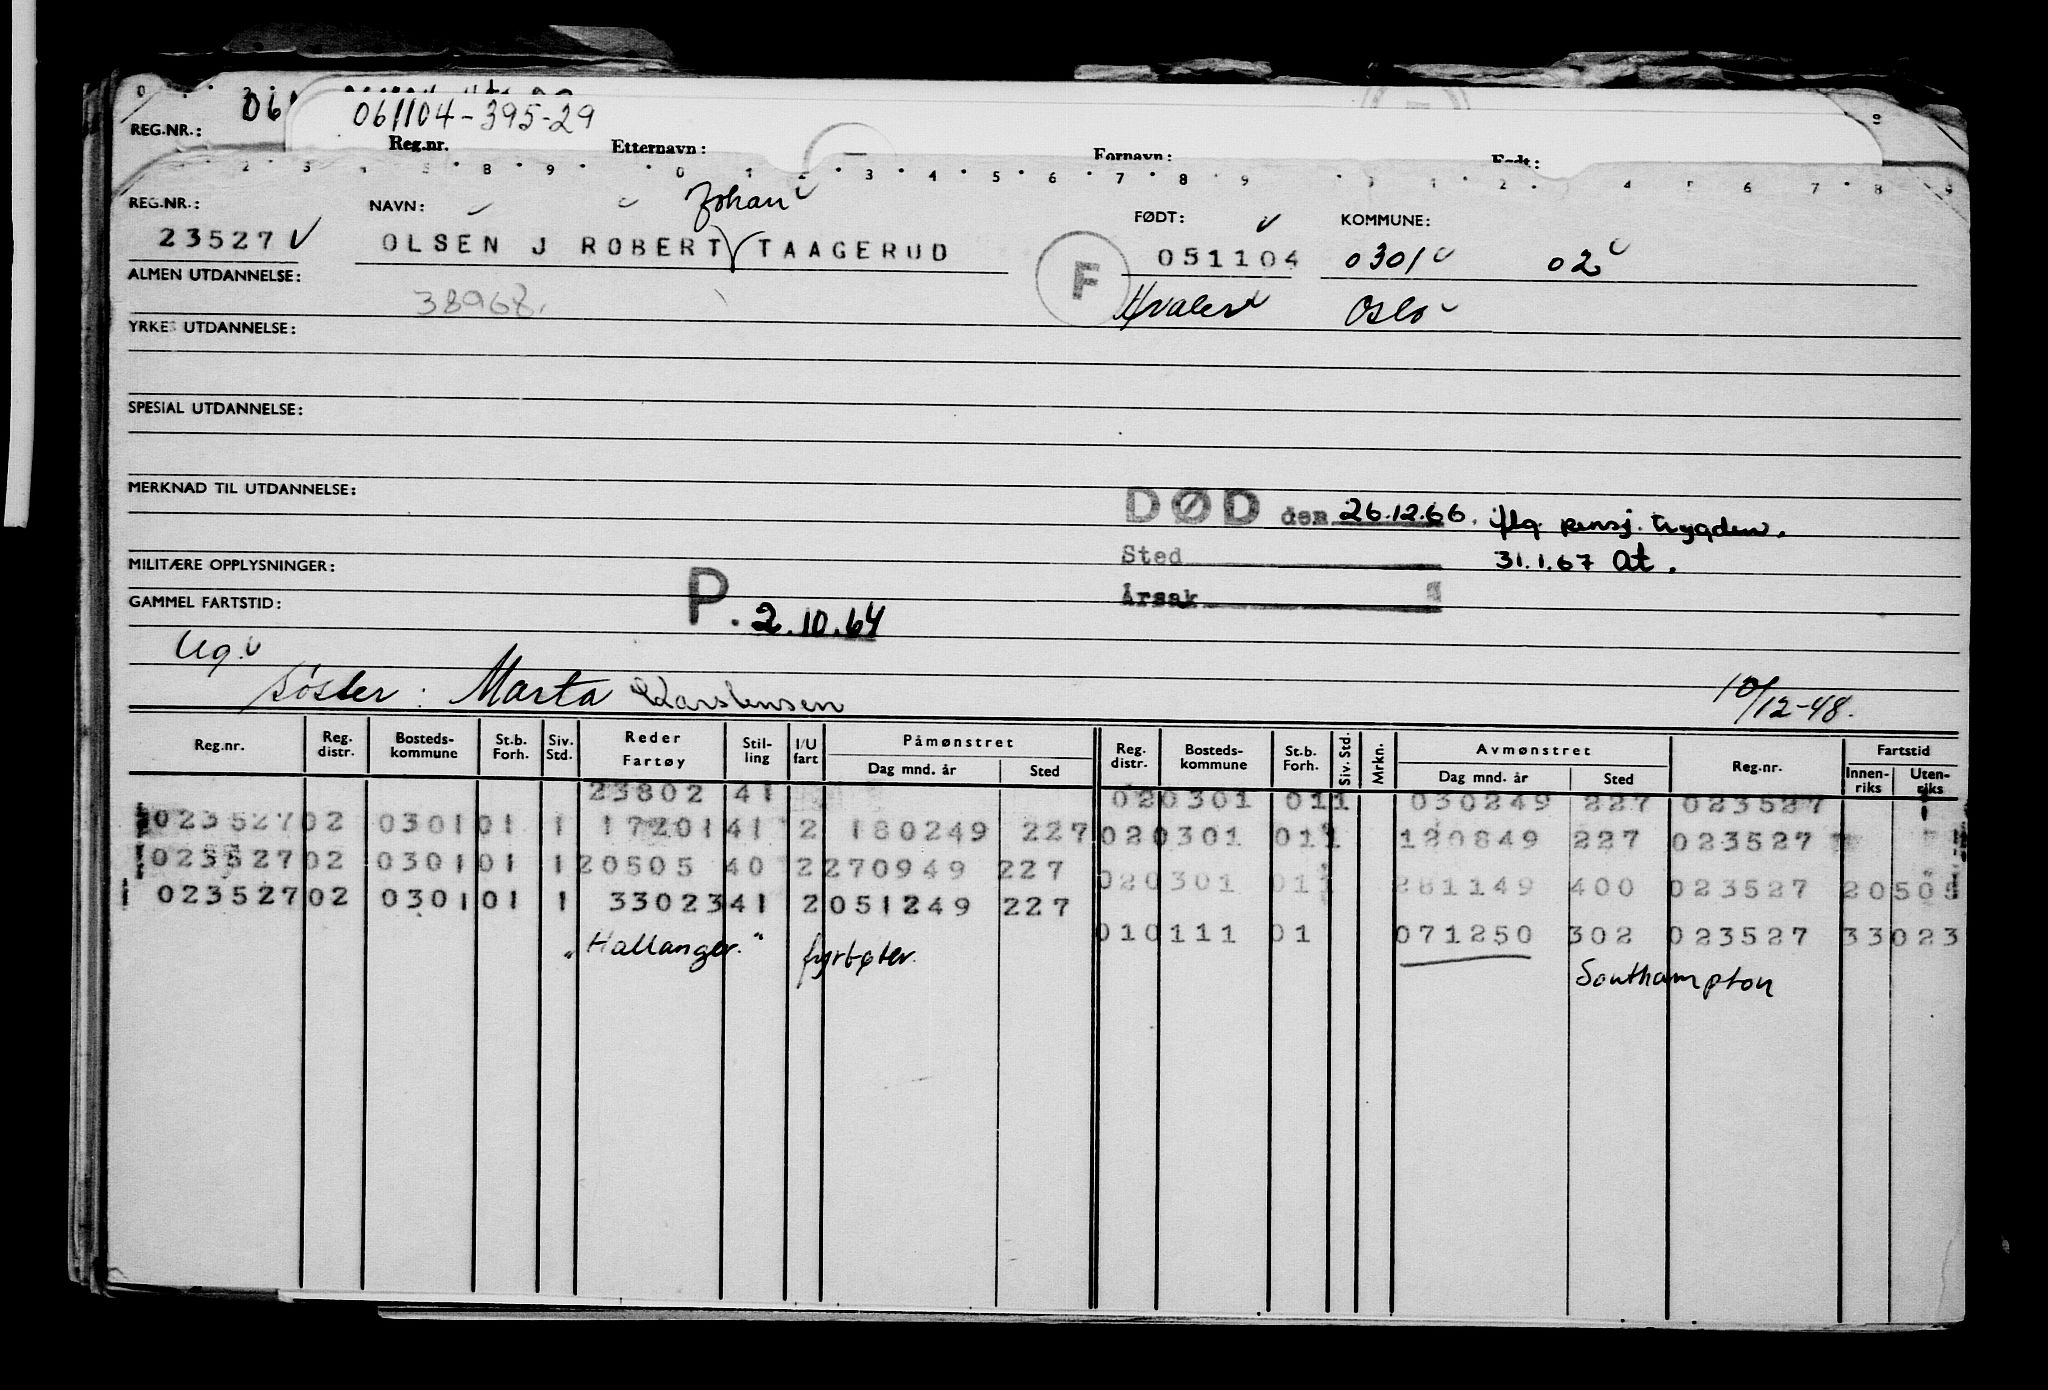 061104-395-29
REG.NR.:
Reg.nr. Etternavn: Fornavn: Født:
REG.NR.: NAVN: Johan FØDT: KOMMUNE:
23527 OLSEN J ROBERT TAAGERUD F 051104 0301 02
ALMEN UTDANNELSE: 38968. Hvaler Oslo
YRKES UTDANNELSE:
SPESIAL UTDANNELSE:
MERKNAD TIL UTDANNELSE:
DØD den 26.12.66. iflg. pensj. trygden.
Sted 31.1.67 At.
MILITÆRE OPPLYSNINGER:
Årsak
GAMMEL FARTSTID: P. 2.10.64
Ug.
Søster: Marta Karstensen 10/12-48.
Reg.nr. Reg. distr. Bosteds- kommune St.b. Forh. Siv. Std. Reder Fartøy Stil- ling I/U fart Påmønstret Dag mnd. år Sted Reg. distr. Bosteds- kommune St.b. Forh. Siv. Std. Mrkn. Avmønstret Dag mnd. år Sted Reg.nr. Fartstid Innen- riks Uten- riks
23802 41 020301 011 030249 227 023527
023527 02 0301 01 1 17201 41 2 180249 227 020301 011 120849 227 023527
023527 02 0301 01 1 20505 40 2 270949 227 020301 011 281149 400 023527 20505
023527 02 0301 01 1 33023 41 2 051249 227 010111 01 071250 302 023527 33023
"Hallanger." fyrbøter. Southampton